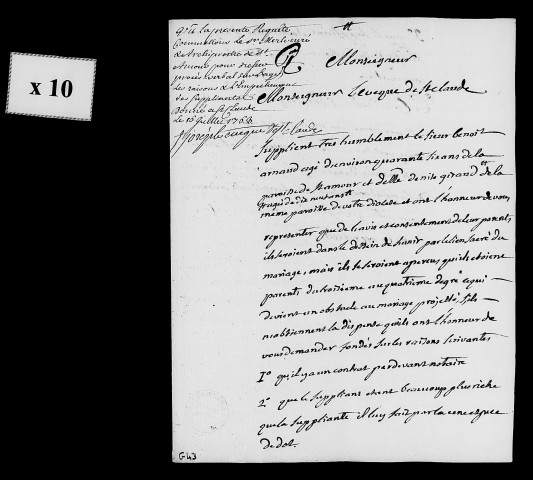 x 10
Vu la presente Requete
Commettons le Sr. Mertenne curé
et Archiprêtre de St.
Amour pour dresser
procès verbal sur
les raisons de l'Empechement
des Suppliants
donné à St Claude
le 15 juillet 1764
Joseph eveque de St. Claude
Monseigneur
Monseigneur l'eveque de st claude
Supplient très humblement le sieur benoit
arnaud agé d'environ quarante six ans de la
paroisse de st amour et delle denise girard de la
agée de dix neuf ans
même paroisse de votre diocèse et ont l'honneur de vous
representer que de l'avis et consentement de leur parents,
ils seroient dans le dessein de s'unir par le lien sacré du
mariage, mais ils se seroient aperçus qu'ils etoient
parents du troisieme au quatrieme degré ce qui
devient un obstacle au mariage projetté, s'ils
n'obtiennent la dispense qu'ils ont l'honneur de
vous demander fondés sur les raisons suivantes
1° qu'il y a un contrat par devant notaire
2° que le suppliant etant beaucoup plus riche
que la suppliante il luy fait par la une espece
de dot.
G 43